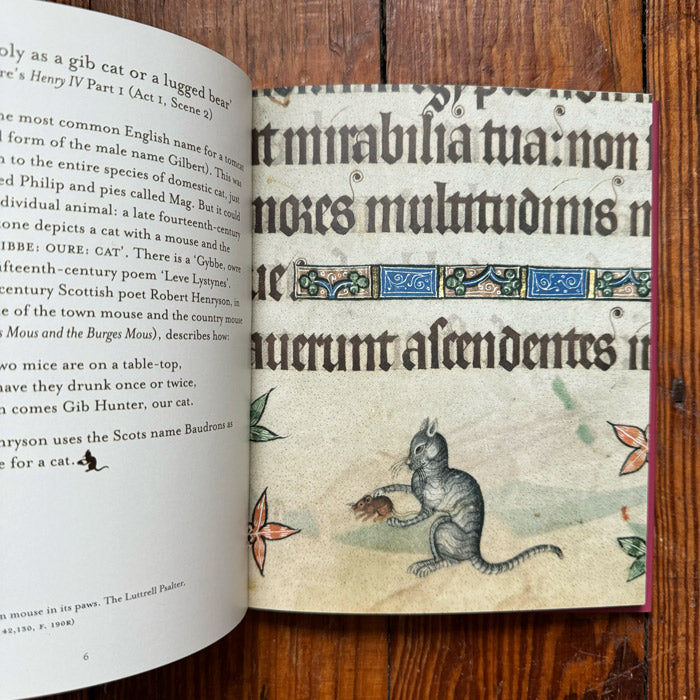 oly as a gib cat or a lugged bear'
re's Henry IV Part 1 (Act 1, Scene 2)
he most common English name for a tomcat
d form of the male name Gilbert). This was
n to the entire species of domestic cat, just
ed Philip and pies called Mag. But it could
dividual animal: a late fourteenth-century
tone depicts a cat with a mouse and the
IBBE: OURE: CAT'. There is a 'Gybbe, owre
ifteenth-century poem 'Leve Lystynes'.
century Scottish poet Robert Henryson, in
e of the town mouse and the country mouse
s Mous and the Burges Mous), describes how:
wo mice are on a table-top,
have they drunk once or twice,
n comes Gib Hunter, our cat.
nryson uses the Scots name Baudrons as
e for a cat.
n mouse in its paws. The Luttrell Psalter,
42,130, F. 190R)
6
egypto non
t mirabilia tua: non
mores multitudinis m
ue
auerunt ascendentes